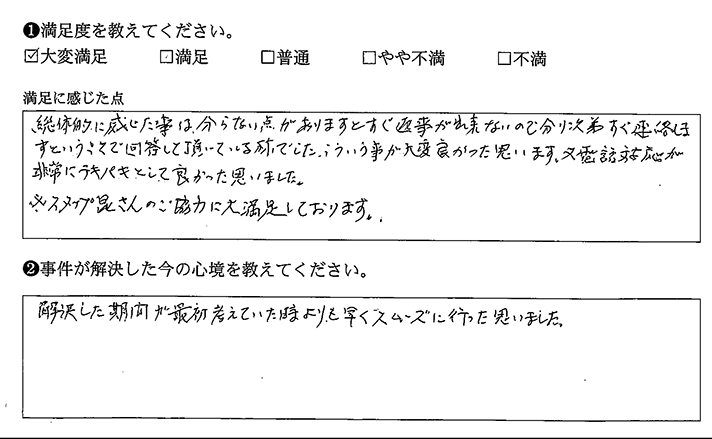 ❶満足度を教えてください。
☑大変満足 □満足 □普通 □やや不満 □不満
満足に感じた点
総体的に感じた事は、分らない点がありますとすぐ返事が出来ないので分り次第すぐ連絡しま
すということで回答して頂いている所でした。こういう事が大変良かった思います。又電話対応が
非常にテキパキとして良かった思いました。
※スタッフ皆さんのご協力に大満足しております。
❷事件が解決した今の心境を教えてください。
解決した期間が最初考えていた時よりも早くスムーズに行った思いました。